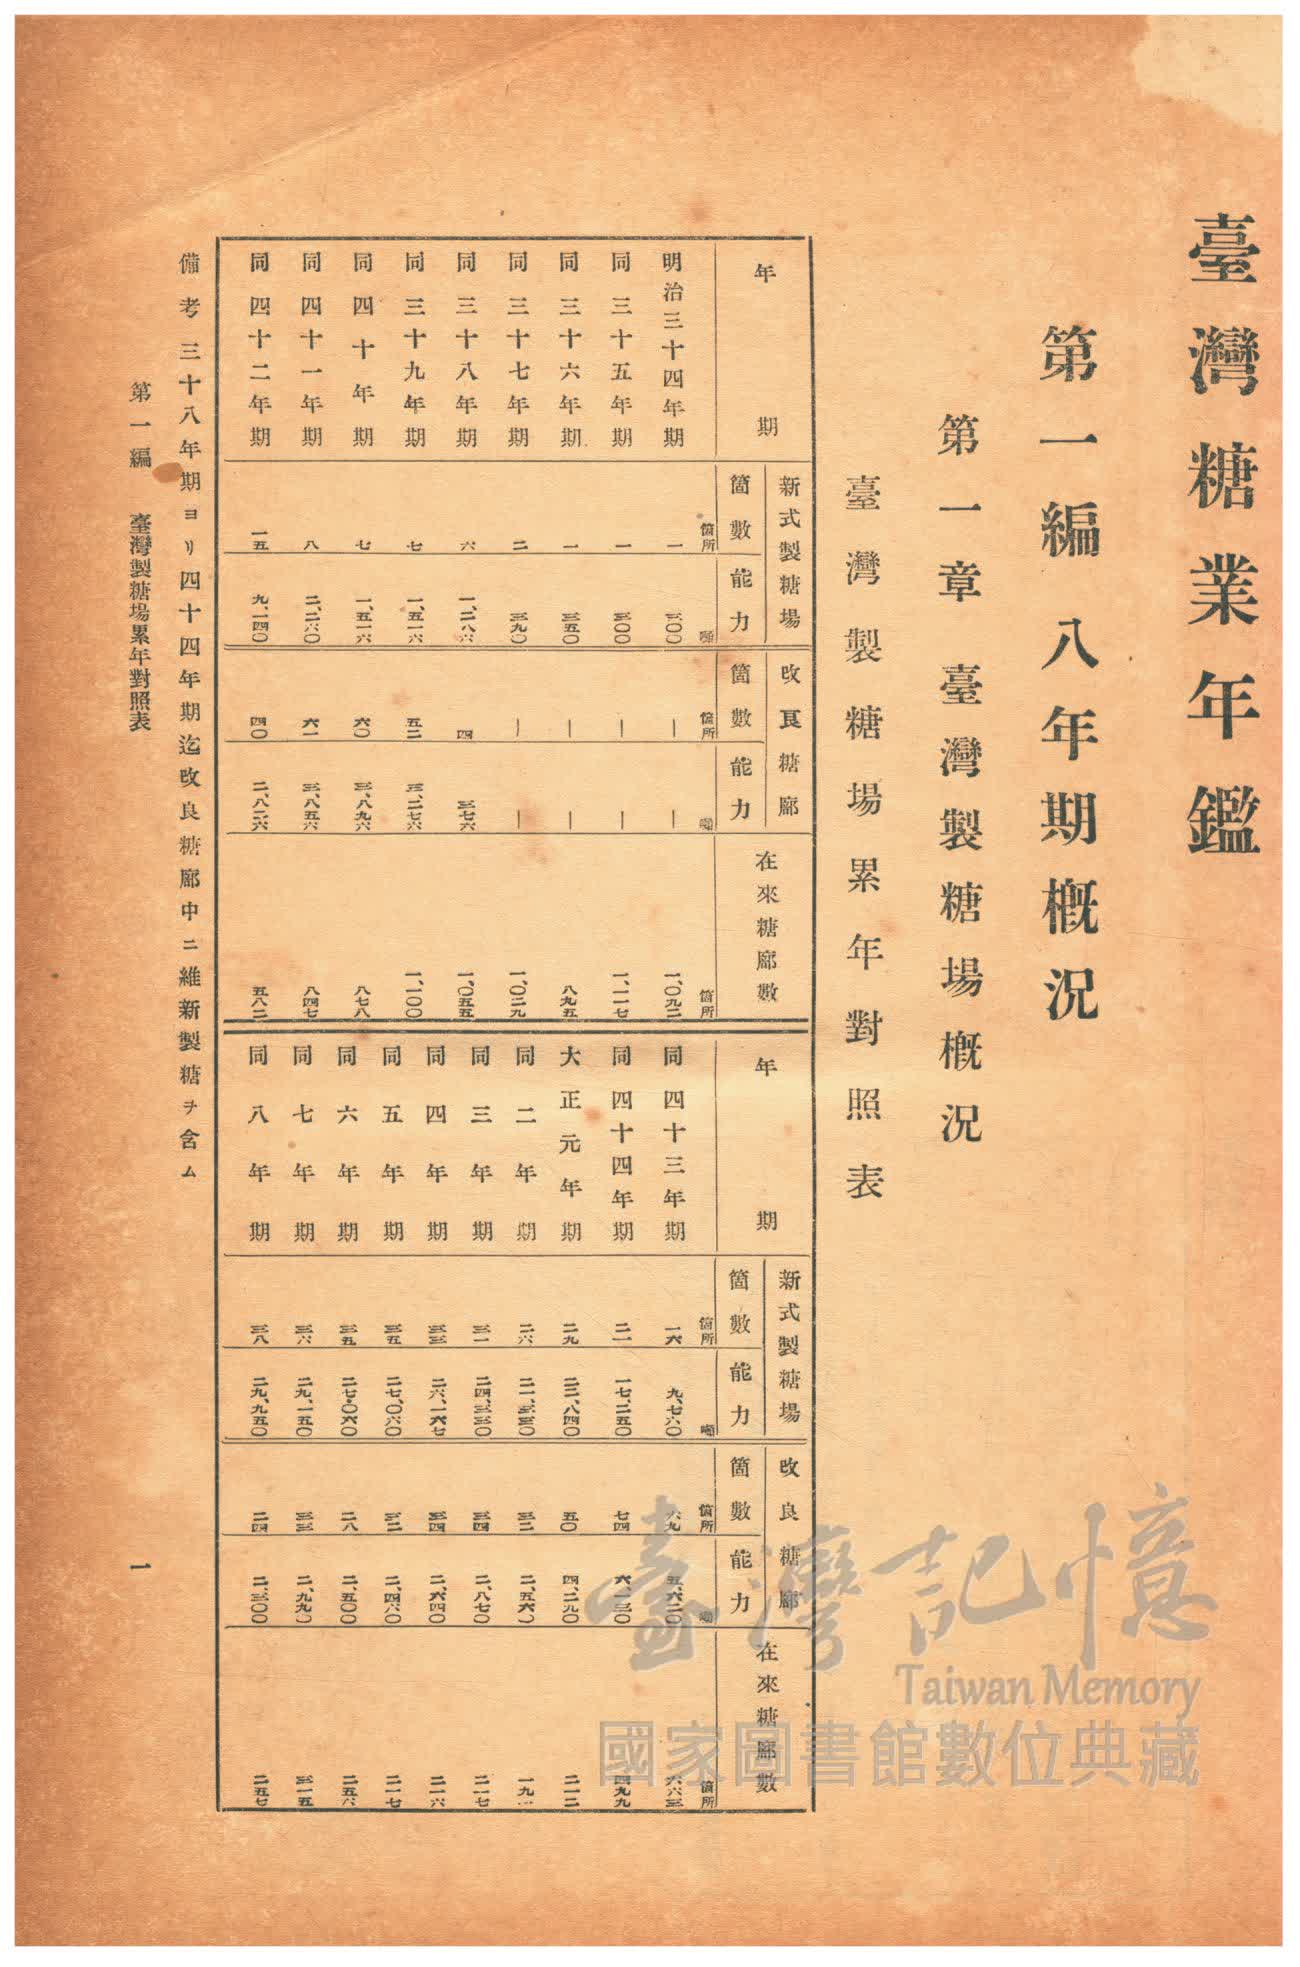 臺灣糖業年鑑
第一編 八年期概況
第一章 臺灣製糖場概況
臺灣製糖場累年對照表
年期 新式製糖場 箇數 能力 改良糖廍 箇數 能力 在來糖廍數
箇所 噸 箇所 噸 箇所
明治三十四年期 一 三〇〇 — — 一、〇九二
同三十五年期 一 三〇〇 — — 一、一一七
同三十六年期 一 三五〇 — — 八九五
同三十七年期 二 三九〇 — — 一、〇二九
同三十八年期 六 一、二八六 四 三七六 一、〇五五
同三十九年期 七 一、五一六 五二 三、二七六 一、一〇〇
同四十年期 七 一、五一六 六〇 三、八九六 八七八
同四十一年期 八 二、二六〇 六一 三、八五六 八四七
同四十二年期 一五 九、一四〇 四〇 二、八二六 五八二
年期 新式製糖場 箇數 能力 改良糖廍 箇數 能力 在來糖廍數
箇所 噸 箇所 噸 箇所
同四十三年期 一六 九、七六〇 六九 五、六二〇 六六三
同四十四年期 二一 一七、二五〇 七四 六、一三〇 四九九
大正元年期 二九 二三、八四〇 五〇 四、二九〇 二一二
同二年期 二六 二一、三三〇 三二 二、五六〇 一九一
同三年期 三一 二四、三三〇 三四 二、八七〇 二一七
同四年期 三三 二六、一六七 三四 二、六四〇 二一六
同五年期 三五 二七、〇六〇 三二 二、四六〇 二一七
同六年期 三五 二七、〇六〇 二八 二、五〇〇 二五六
同七年期 三六 二九、一五〇 三三 二、九九〇 三一五
同八年期 三八 二九、九五〇 二四 二、三〇〇 二五七
備考 三十八年期ヨリ四十四年期迄改良糖廍中ニ維新製糖ヲ含ム
第一編 臺灣製糖場累年對照表 一
臺灣記憶
Taiwan Memory
國家圖書館數位典藏